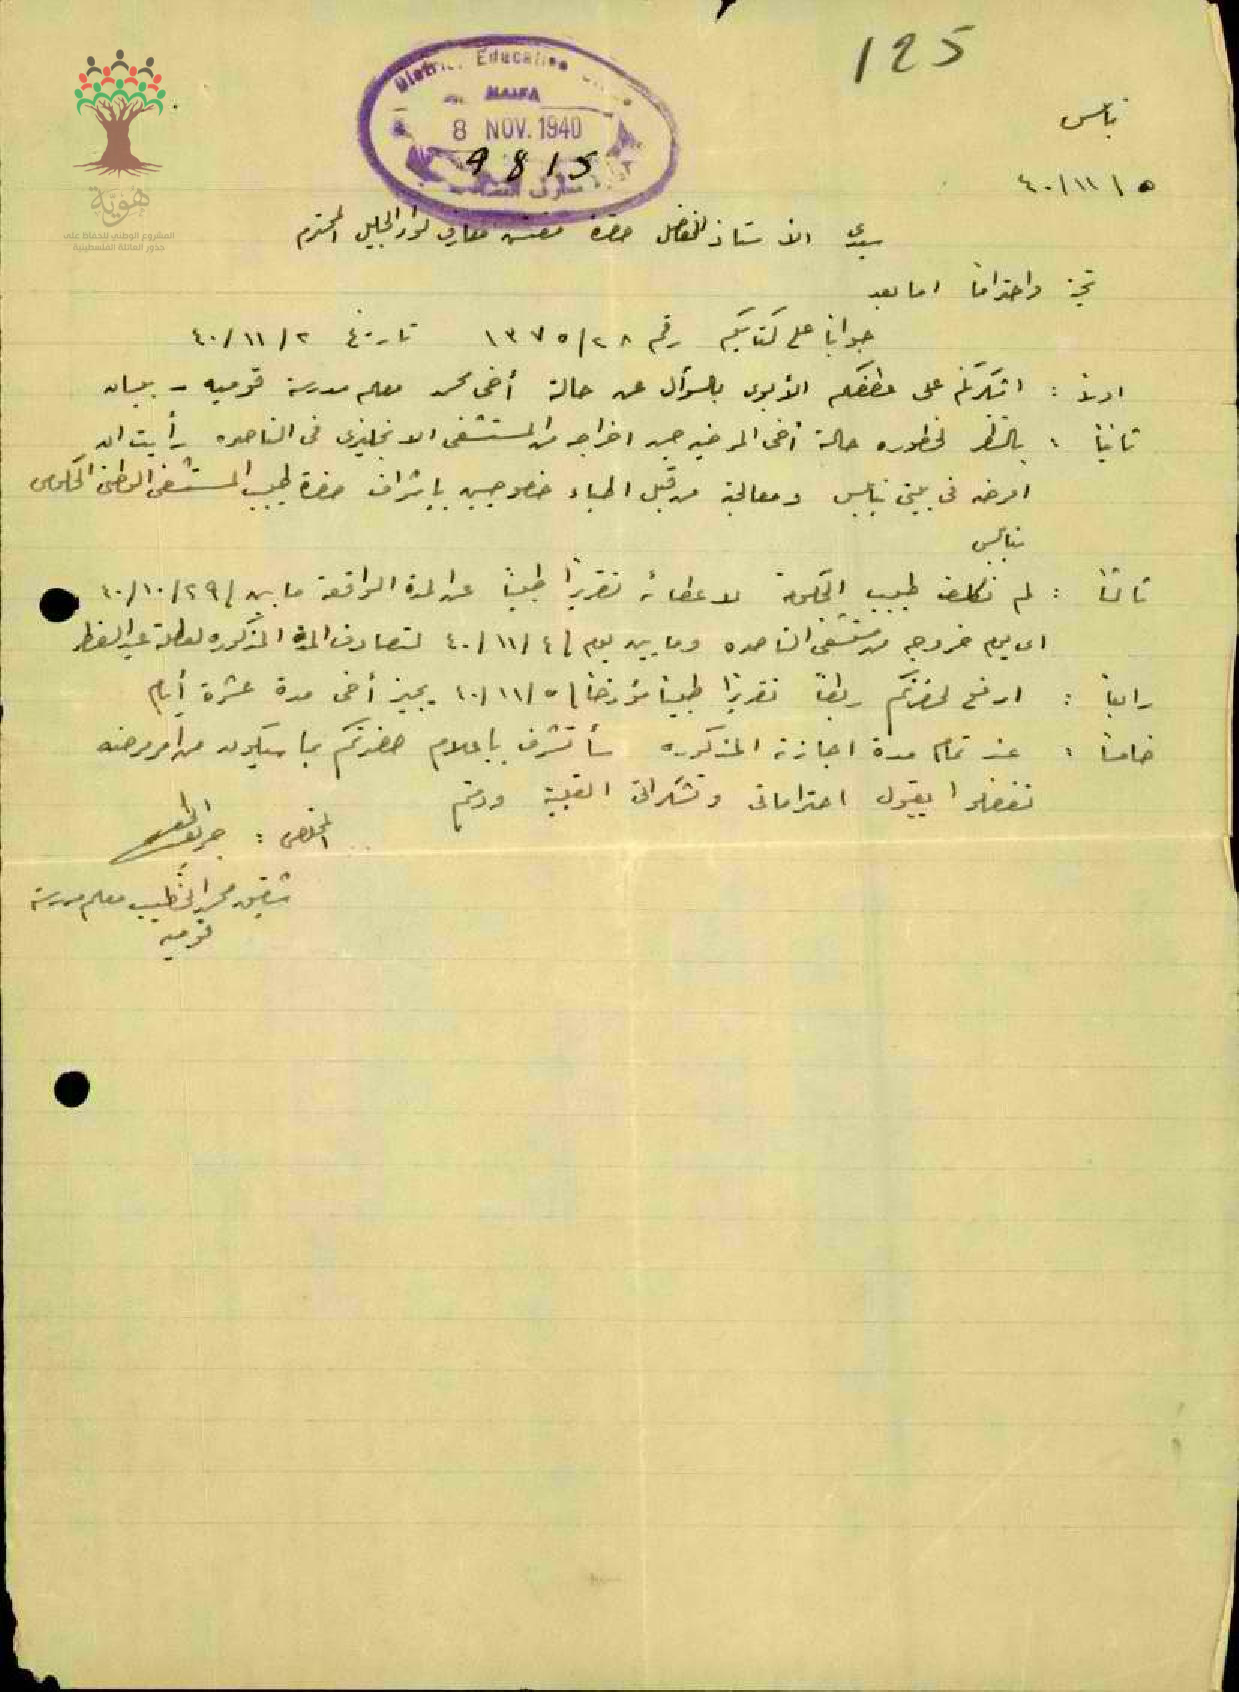 125
District Education
HAIFA
8 NOV. 1940
9815
هوية
المشروع الوطني للحفاظ على
جذور العائلة الفلسطينية
نابلس
٥/١١/٤٠
سيدي الاستاذ المفضل حضرة مفتش معارف لواء الجليل المحترم
تحية واحتراماً اما بعد
جواباً على كتابكم رقم ١٣٧٥/٢٨ تاريخ ٢/١١/٤٠
اولاً : اشكركم على عطفكم الأبوي بالسؤال عن حالة أخي محمد معلم مدرسة قوميه - بيسان
ثانياً : بالنظر لخطوره حالة أخي المرضيه حين اخراجه من المستشفى الانجليزي في الناصره رأيت ان
امرضه في بيتي نابلس ومعالجة من قبل اطباء خصوصيين باشراف حضرة طبيب المستشفى الوطني الحكومي
نابلس
ثالثاً : لم نكلف طبيب الحكومة لاعطائه تقريراً طبياً عن المدة الواقعة ما بين ٢٩/١٠/٤٠
اي يوم خروجه من مستشفى الناصره وما بين يوم ٤/١١/٤٠ لتصادف المدة المذكوره لعطلة عيد الفطر
رابعاً : ارفع لحضرتكم بطياً تقريراً طبياً مؤرخاً ٥/١١/٤٠ يجيز أخي مدة عشرة أيام
خامساً : عند تمام مدة اجازته المذكوره سأتشرف باعلام حضرتكم بما سيكون من امر مرضه
تفضلوا بقبول احتراماتي وتشكراتي القلبية ودمتم
المخلص :
شقيق محمد الخطيب معلم مدرسة
قوميه